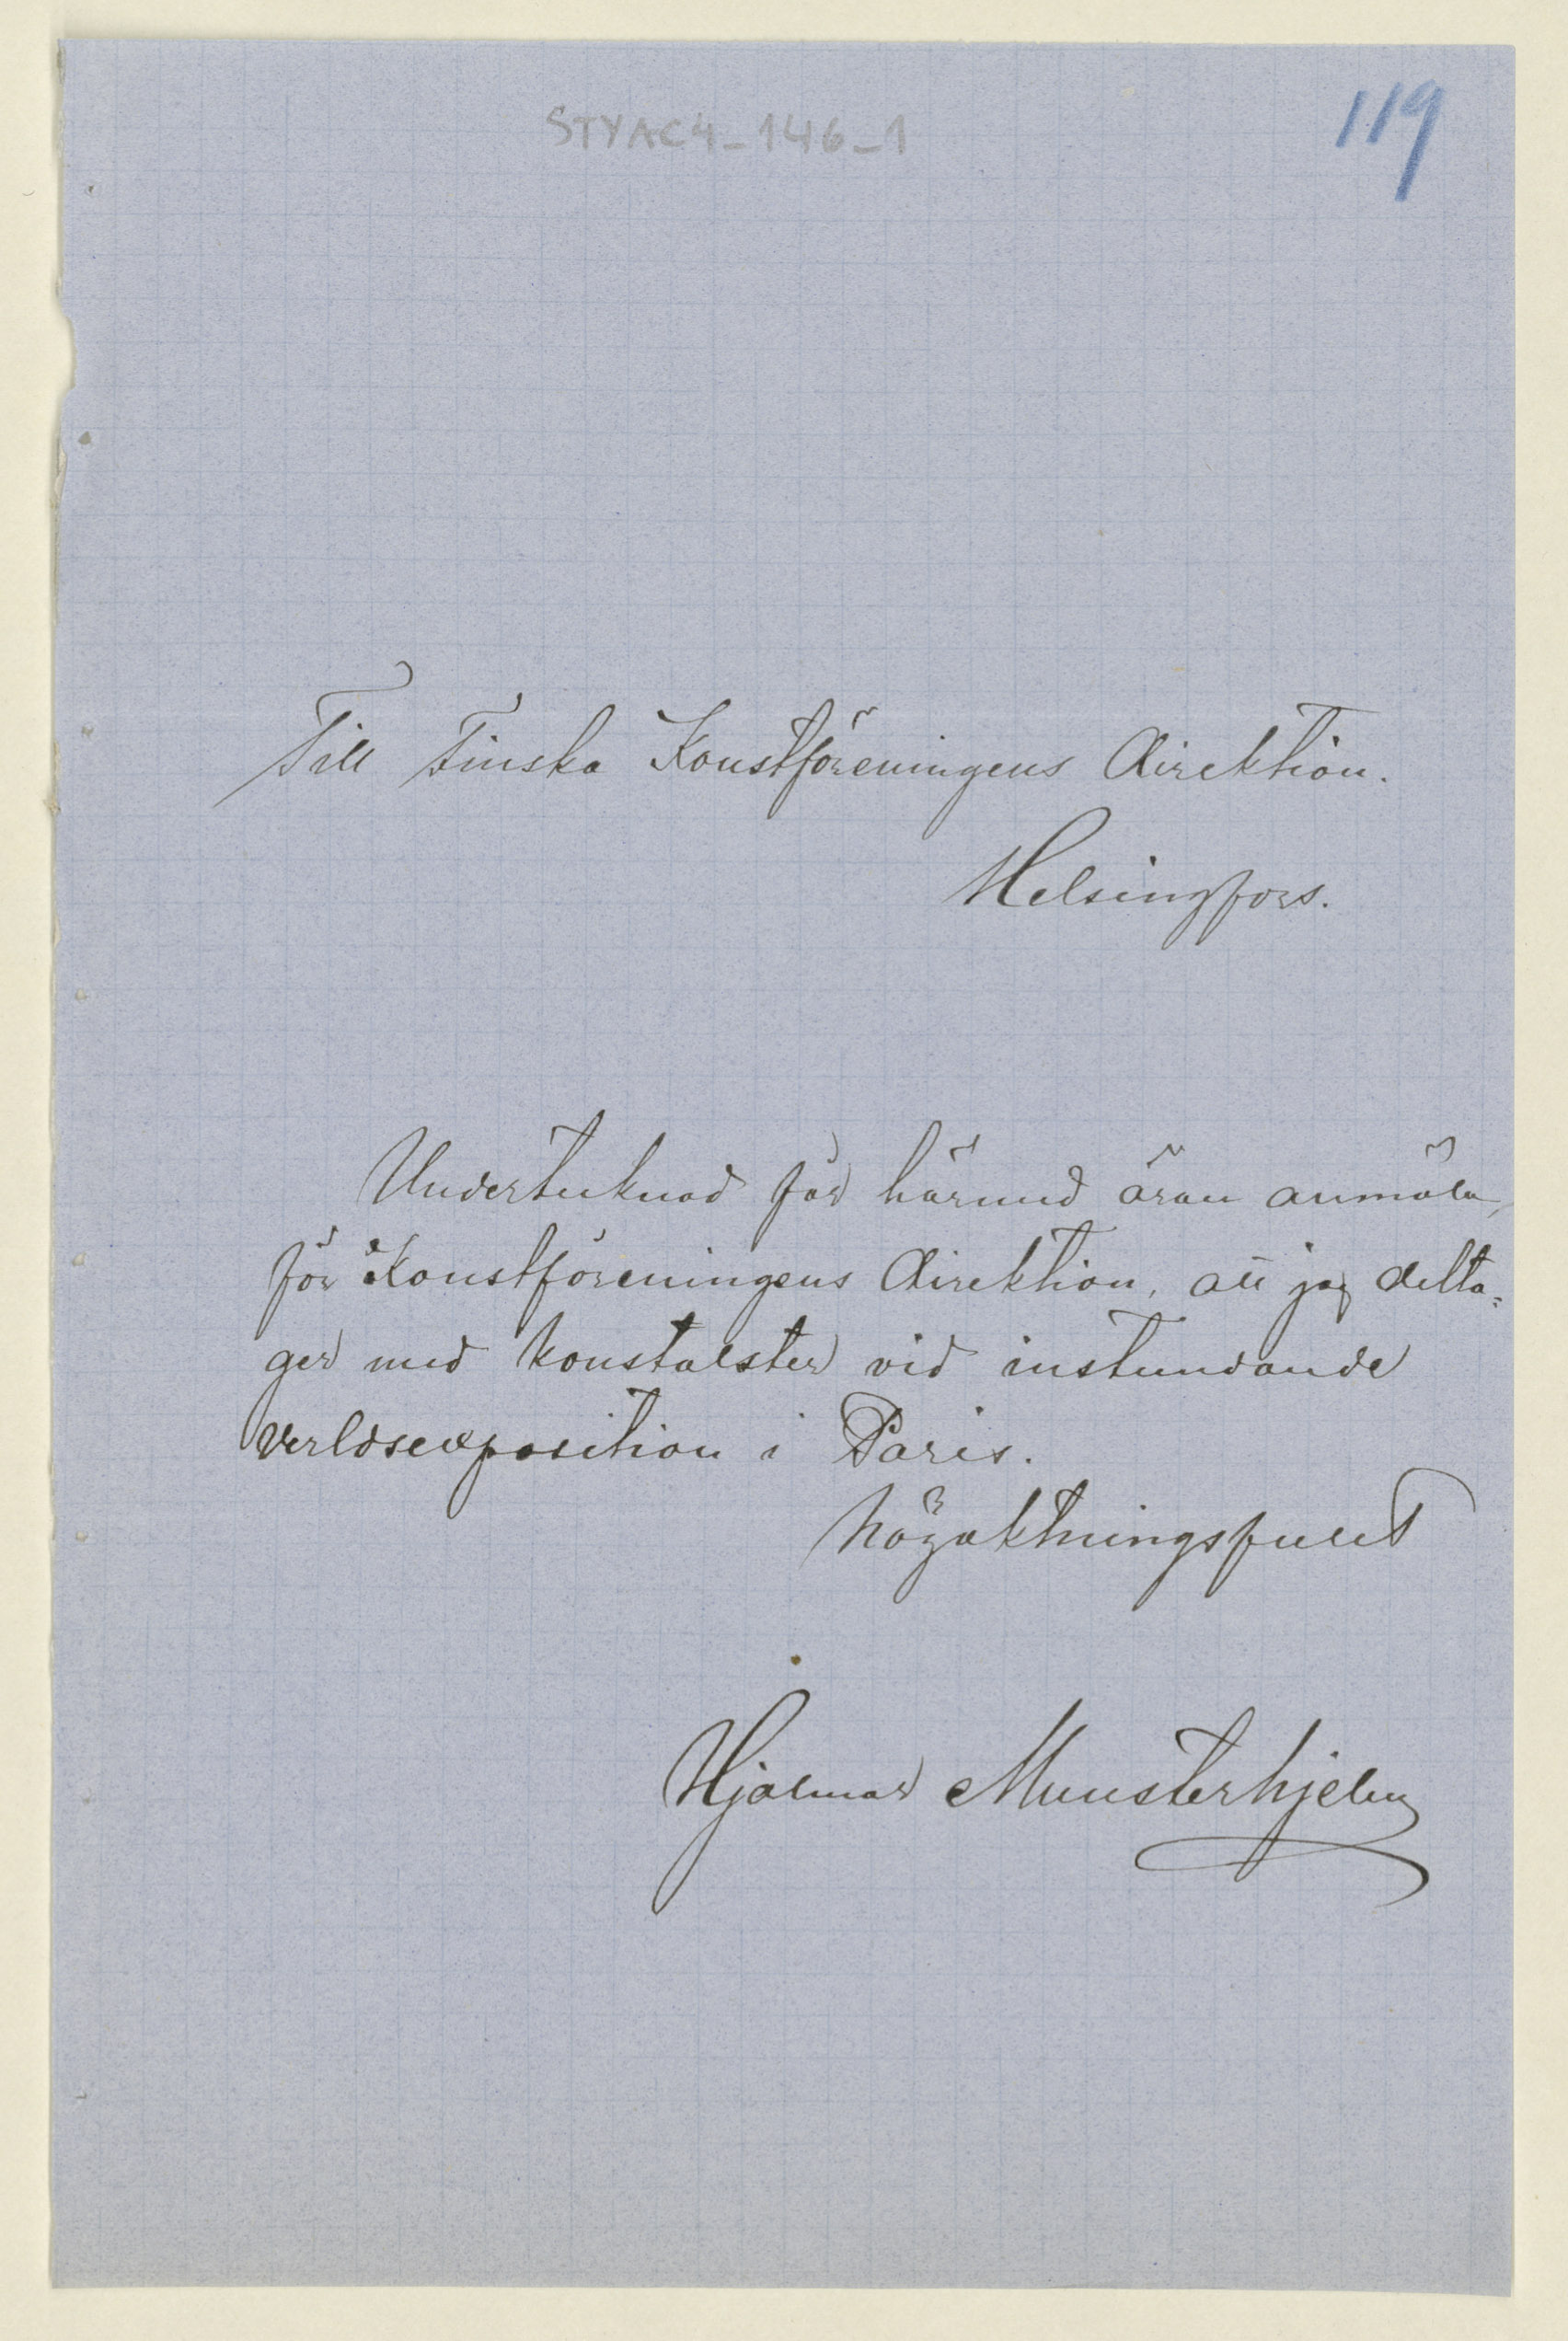 STYAC4_146_1
119
Till Finska Konstföreningens direktion.
Helsingfors.
Undertecknad får härmed äran anmäla,
för Konstföreningens direktion, att jag delta=
ger med konstalster vid instundande
verldsexposition i Paris.
högaktningsfullt
Hjalmar Munsterhjelm